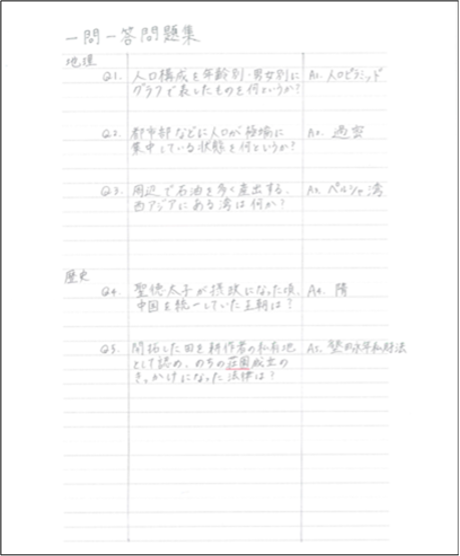 一問一答問題集
地理
Q1. 人口構成を年齢別・男女別に A1. 人口ピラミッド
グラフで表したものを何というか?
Q2. 都市部などに人口が極端に A2. 過密
集中している状態を何というか?
Q3. 周辺で石油を多く産出する、 A3. ペルシャ湾
西アジアにある湾は何か?
歴史
Q4. 聖徳太子が摂政になった頃、 A4. 隋
中国を統一していた王朝は?
Q5. 開拓した田を耕作者の私有地 A5. 墾田永年私財法
として認め、のちの荘園成立の
きっかけになった法律は?